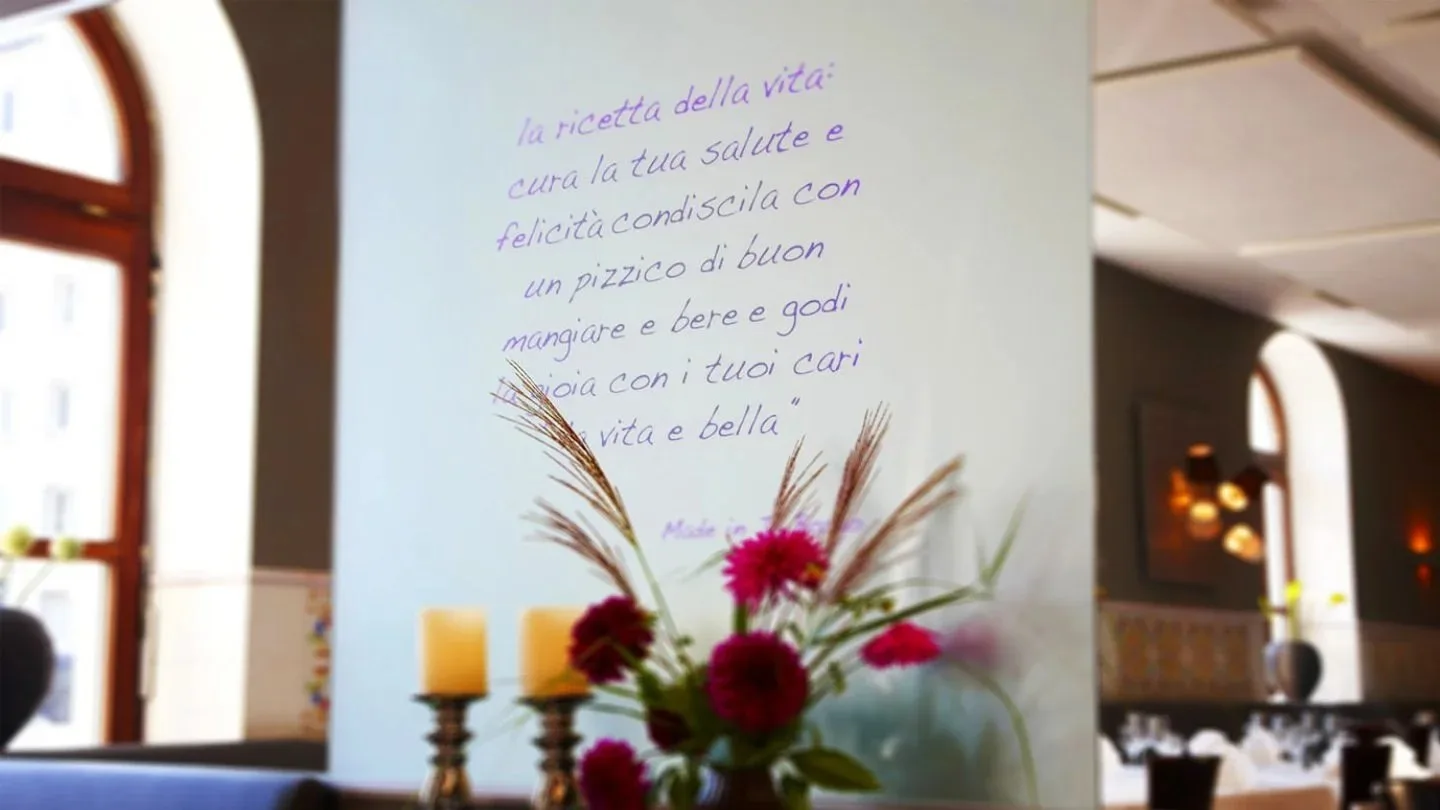 la ricetta della vita:
cura la tua salute e
felicità condiscila con
un pizzico di buon
mangiare e bere e godi
la gioia con i tuoi cari
la vita e bella"
Made in